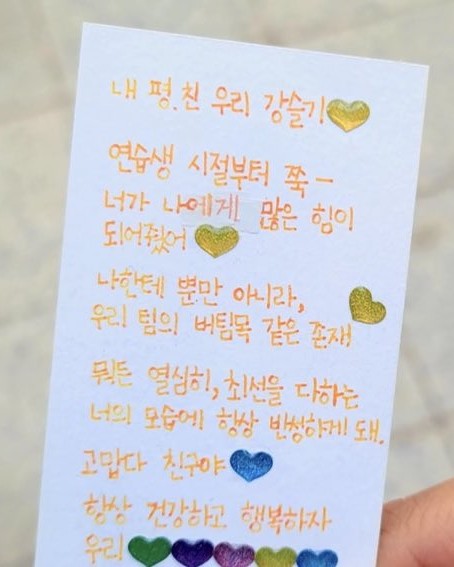 내 평.친 우리 강슬기
연습생 시절부터 쭉-
너가 나에게 많은 힘이
되어줬어
나한테 뿐만 아니라,
우리 팀의 버팀목 같은 존재
뭐든 열심히, 최선을 다하는
너의 모습에 항상 반성하게 돼.
고맙다 친구야
항상 건강하고 행복하자
우리